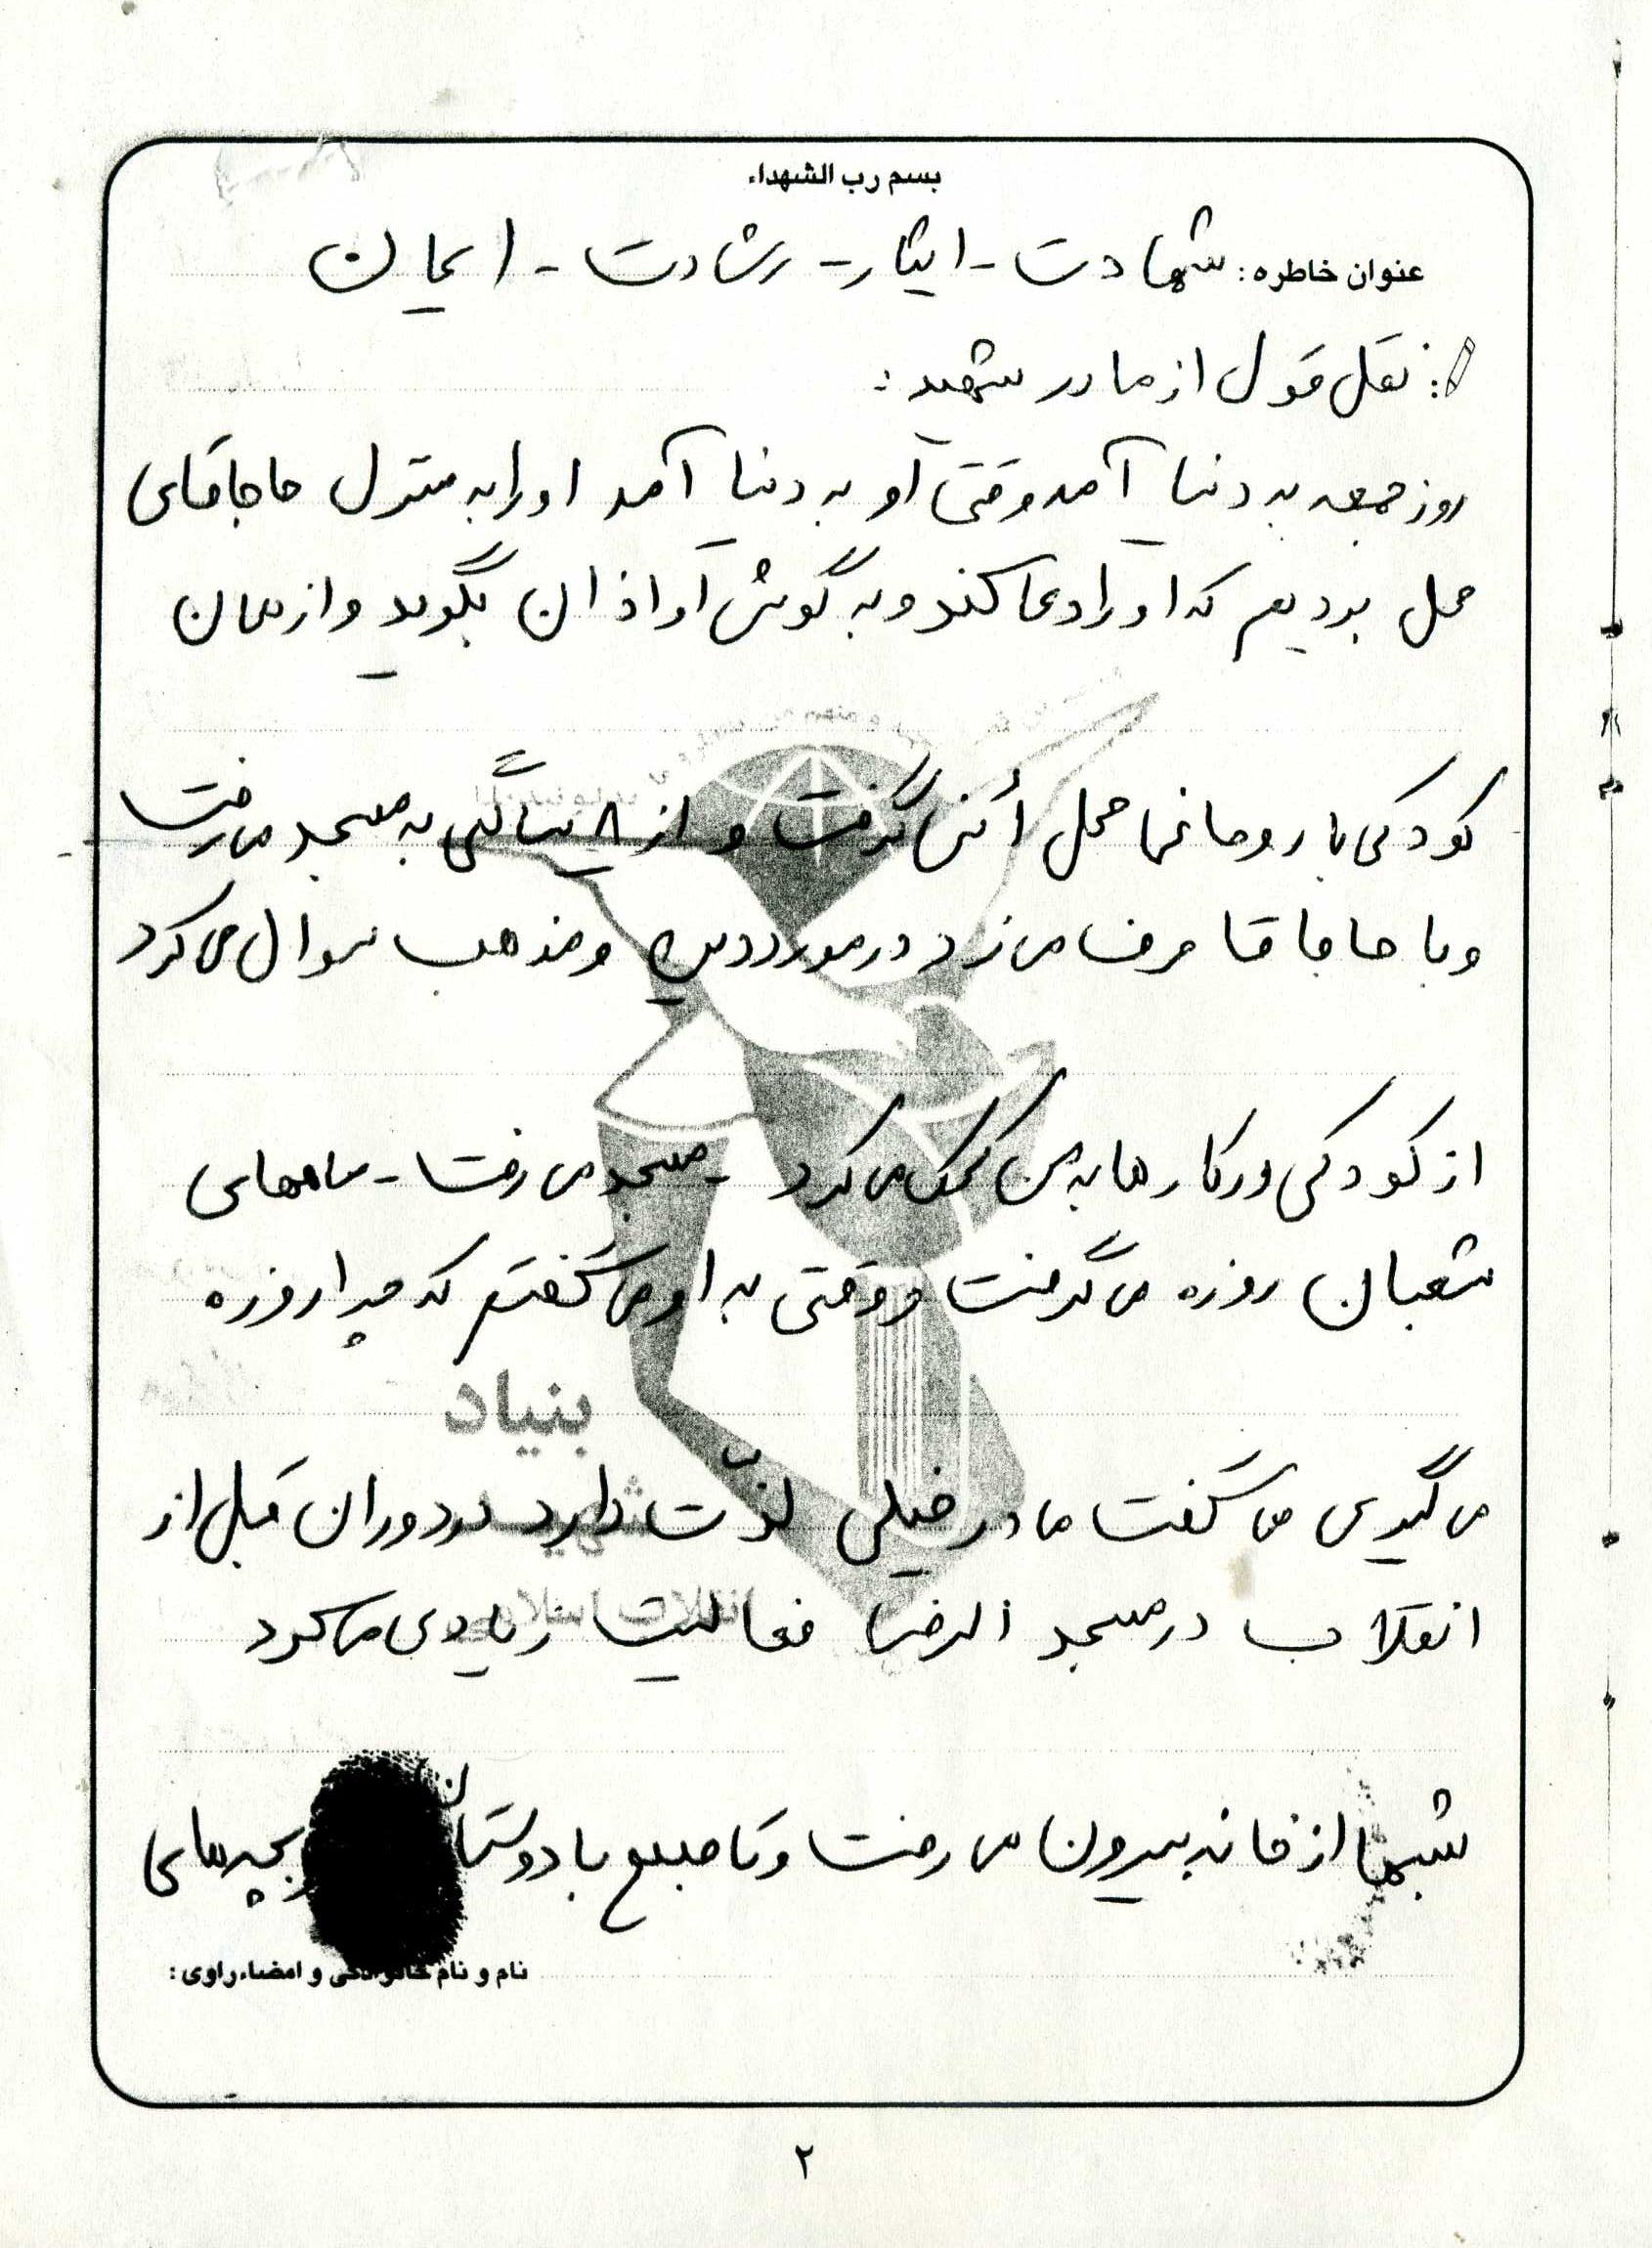 بسم رب الشهداء
عنوان خاطره: شهادت - ایثار - رشادت - ایمان
: نقل قول از مادر شهید:
روز جمعه به دنیا آمد وقتی او به دنیا آمد او را به منزل حاجاقای
محل بردیم که او را دعا کند و به گوش او اذان بگوید و از همان
کودکی با روحانی محل أنس گرفت و از ۸ سالگی به مسجد می‌رفت
و با حاجاقا حرف می‌زد در مورد دین و مذهب سوال می‌کرد
از کودکی در کارها به من کمک می‌کرد - مسجد می‌رفت - ماههای
شعبان روزه می‌گرفت و وقتی به او می‌گفتم که چرا روزه
بنیاد
شهید
انقلاب اسلامی
می‌گیری می‌گفت مادر خیلی لذّت دارد در دوران قبل از
انقلاب در مسجد الرضا فعالیت زیادی می‌کرد
شبها از خانه بیرون می‌رفت و تا صبح با دوستان و بچه‌های
نام و نام خانوادگی و امضاء راوی:
۲